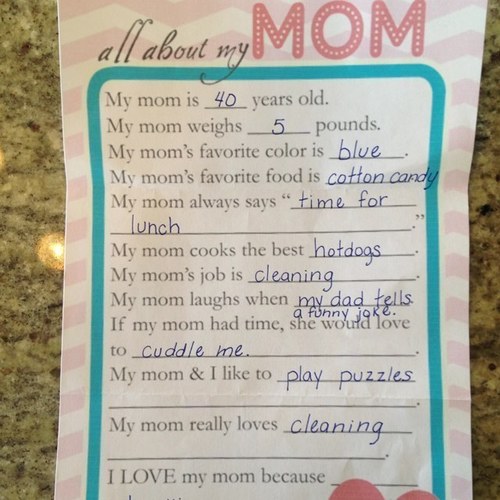 all about my MOM
My mom is 40 years old.
My mom weighs 5 pounds.
My mom's favorite color is blue.
My mom's favorite food is cotton candy
My mom always says "time for
lunch."
My mom cooks the best hotdogs.
My mom's job is cleaning.
My mom laughs when my dad tells
a funny joke.
If my mom had time, she would love
to cuddle me.
My mom & I like to play puzzles
.
My mom really loves cleaning
.
I LOVE my mom because